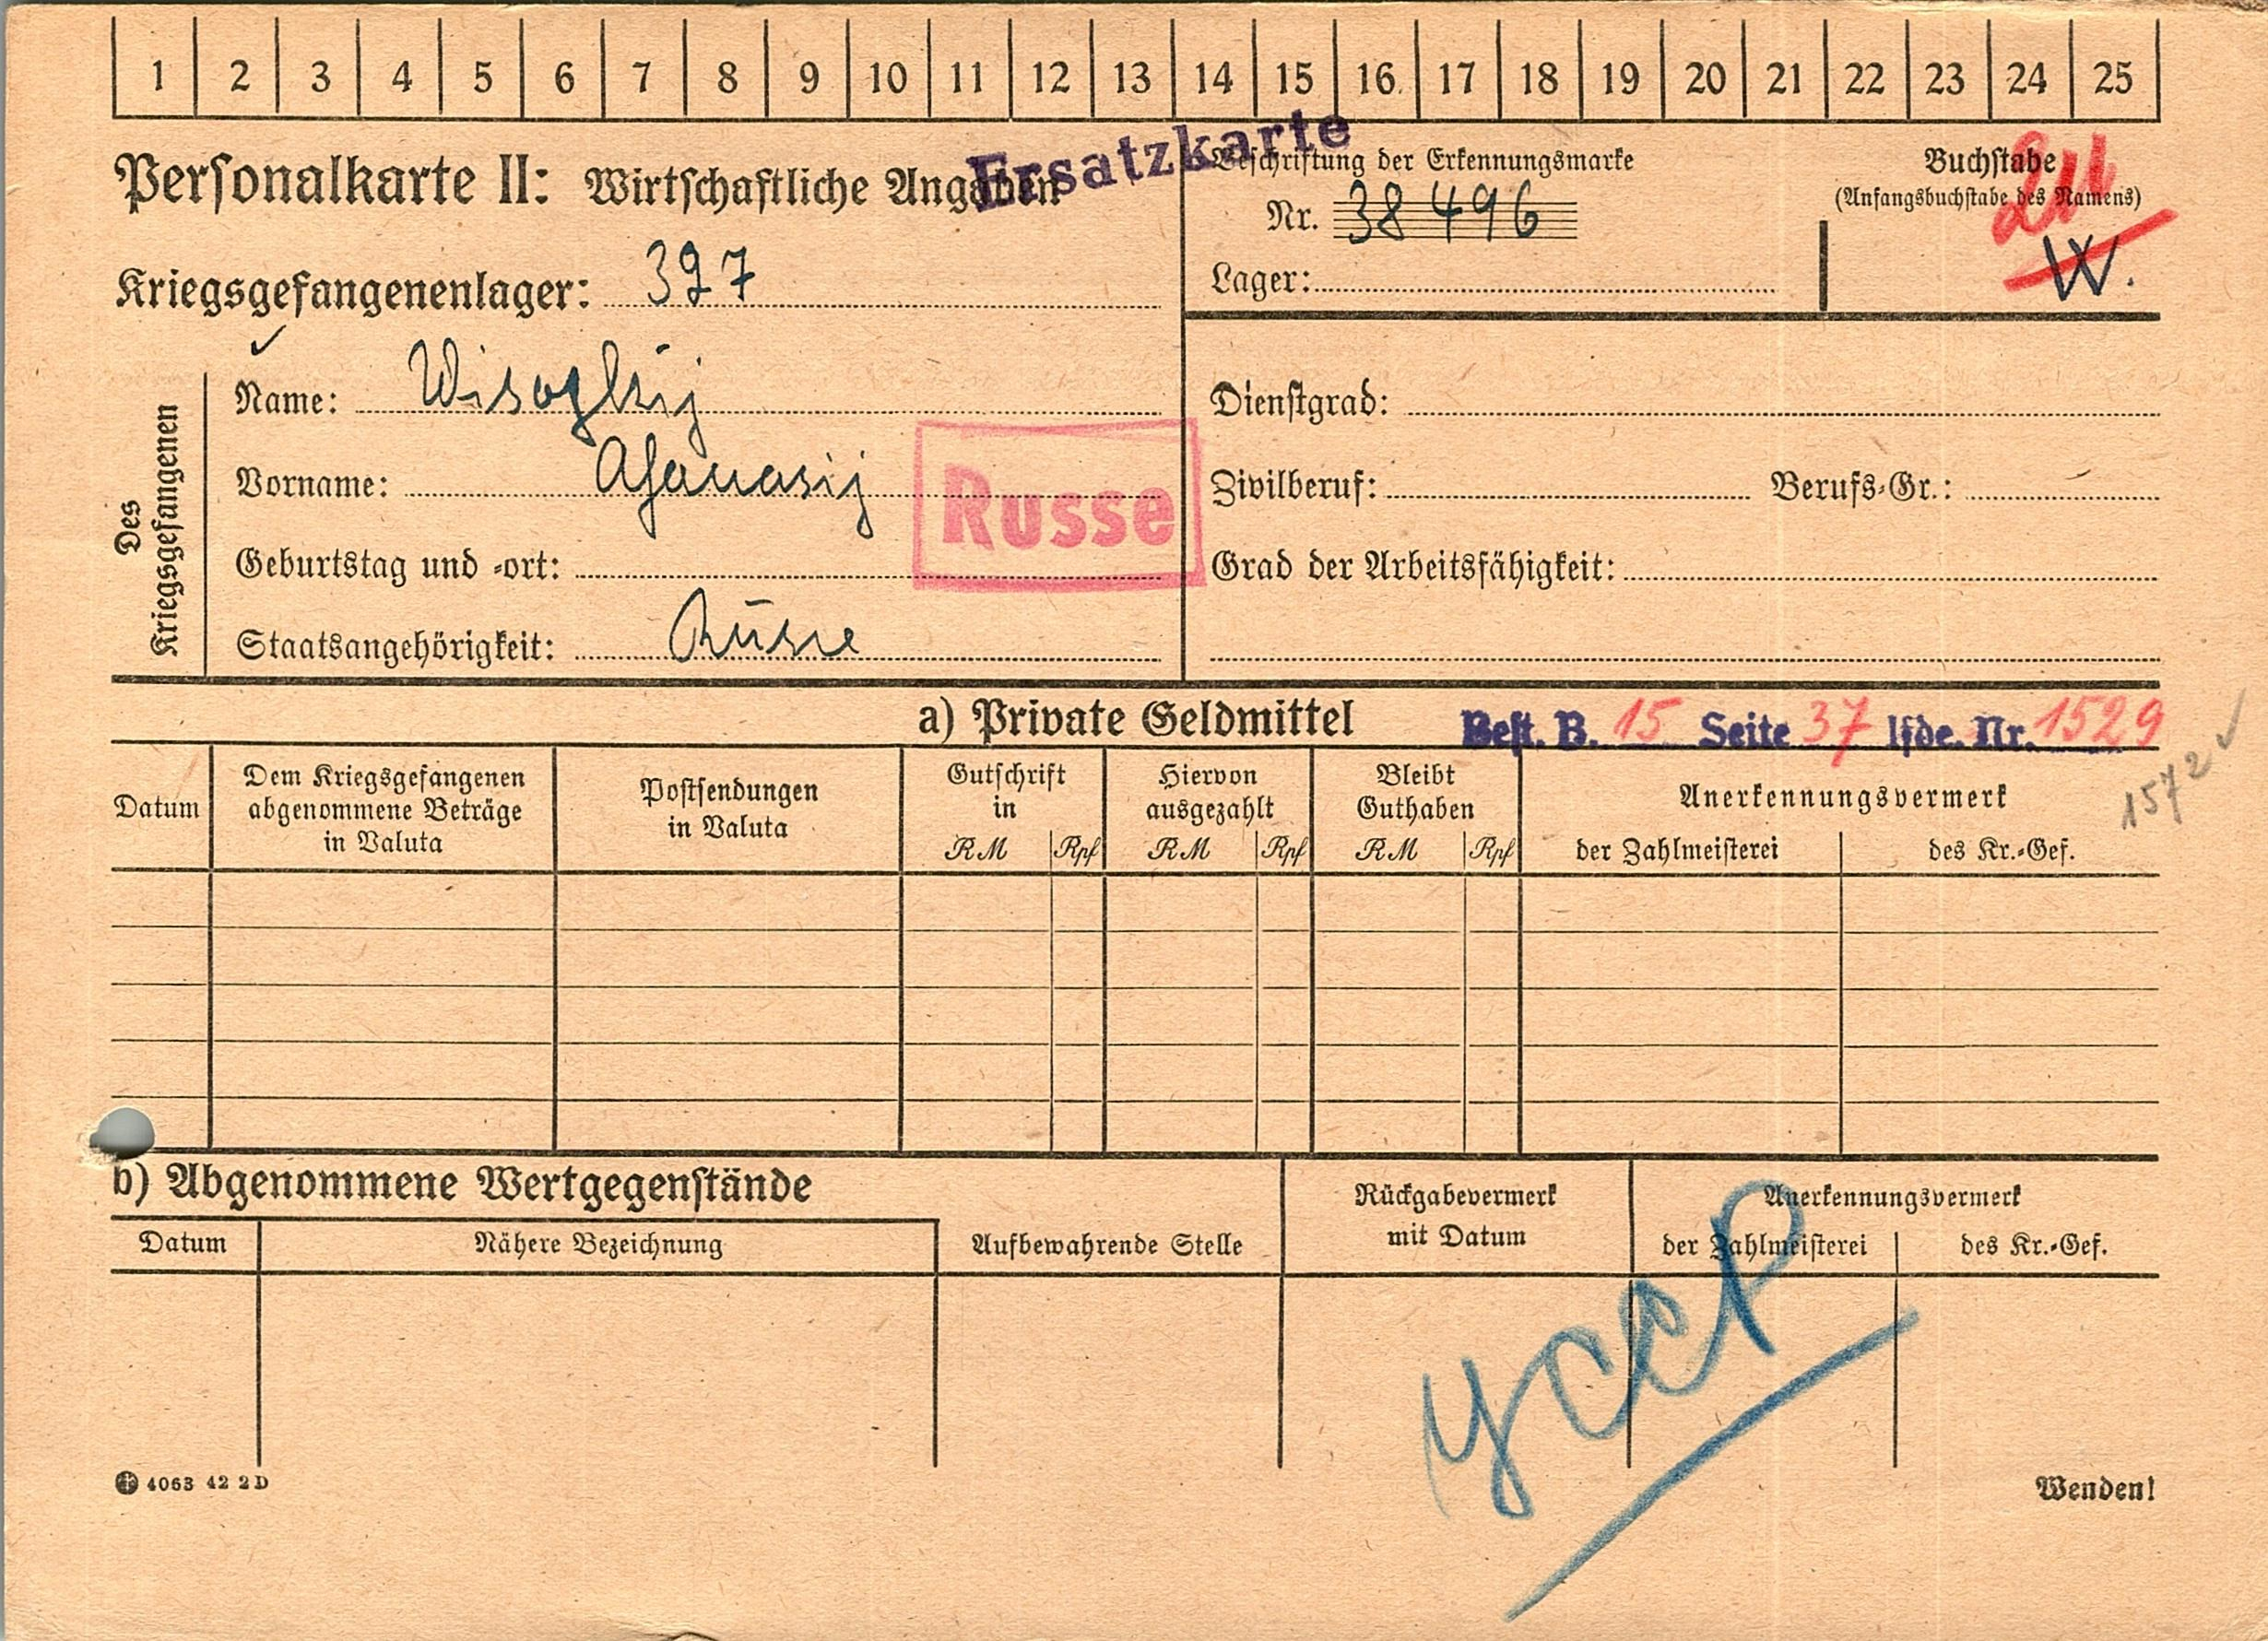 1 2 3 4 5 6 7 8 9 10 11 12 13 14 15 16 17 18 19 20 21 22 23 24 25
Ersatzkarte
Personalkarte II: Wirtschaftliche Angaben
Beschriftung der Erkennungsmarke
Nr. 38496
Lager:
Buchstabe
(Anfangsbuchstabe des Namens)
W.
Kriegsgefangenenlager: 327
Des Kriegsgefangenen
Name:
Vorname: Afanasij
Geburtstag und -ort:
Staatsangehörigkeit: Russe
Russe
Dienstgrad:
Zivilberuf: Berufs-Gr.:
Grad der Arbeitsfähigkeit:
a) Private Geldmittel
Best. B. 15 Seite 37 lfde. Nr. 1529
1572
Datum
Dem Kriegsgefangenen
abgenommene Beträge
in Valuta
Postsendungen
in Valuta
Gutschrift
in
RM Rpf
Hiervon
ausgezahlt
RM Rpf
Bleibt
Guthaben
RM Rpf
Anerkennungsvermerk
der Zahlmeisterei des Kr.-Gef.
b) Abgenommene Wertgegenstände
Datum Nähere Bezeichnung
Aufbewahrende Stelle
Rückgabevermerk
mit Datum
Anerkennungsvermerk
der Zahlmeisterei des Kr.-Gef.
УССР
4063 42 2 D
Wenden!